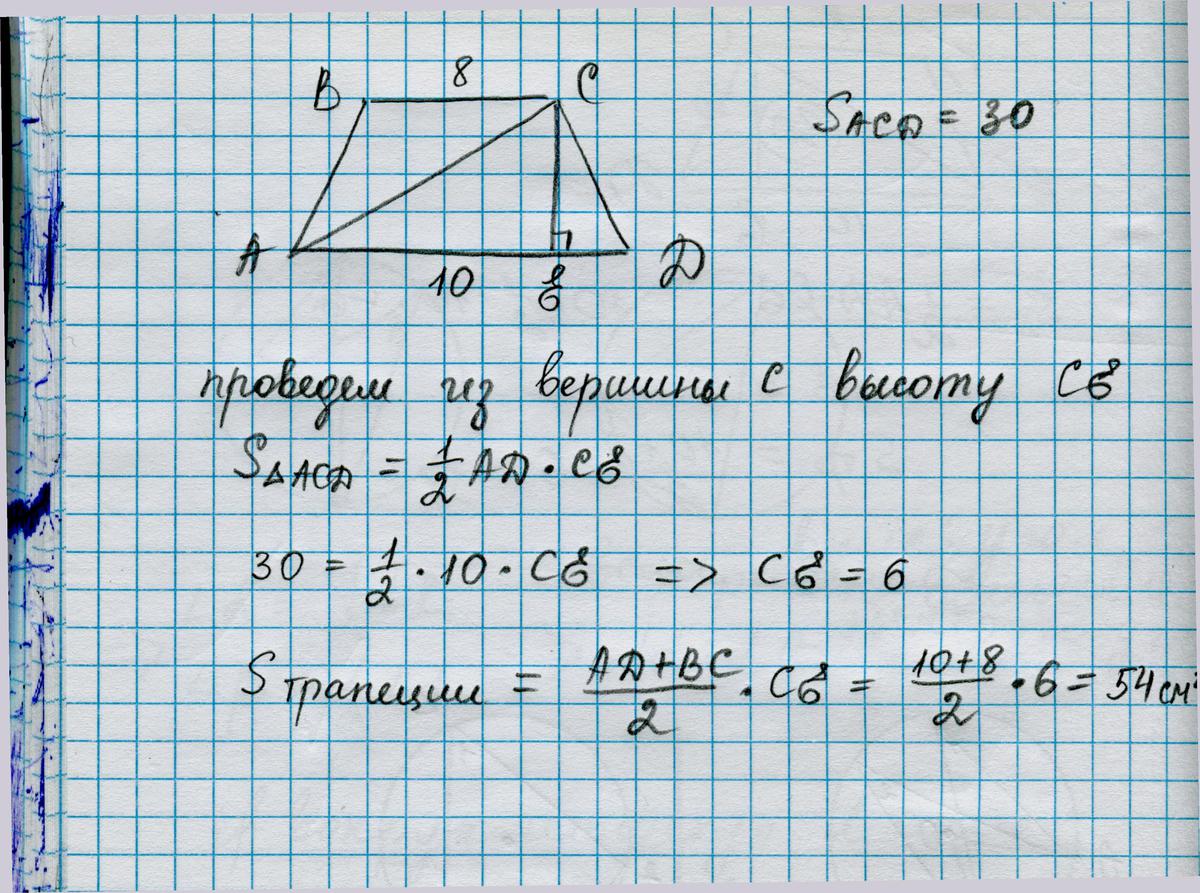 B 8 C
S ACD = 30
A 10 E D
проведем из вершины C высоту CE
S△ACD = 1/2 AD · CE
30 = 1/2 · 10 · CE => CE = 6
S трапеции = (AD+BC)/2 · CE = (10+8)/2 · 6 = 54 см²